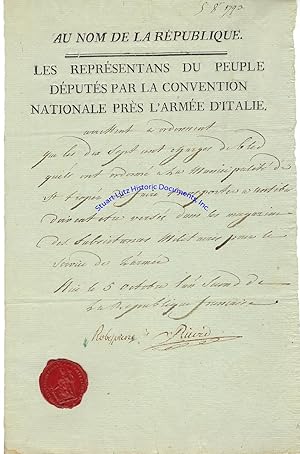 5 8 1793
AU NOM DE LA RÉPUBLIQUE.
LES REPRÉSENTANS DU PEUPLE
DÉPUTÉS PAR LA CONVENTION
NATIONALE PRÈS L'ARMÉE D'ITALIE,
arrêtent et ordonnent
que les dix sept cent charges de bled
qu'ils ont ordonné à la Municipalité de
St Tropez de faire transporter
doivent être versées dans les magazins
des Subsistances Militaires pour le
Service de l'armée
Nice le 5 octobre l'an Second de
La République française
Robespierre Ricord
Stuart Lutz Historic Documents, Inc.